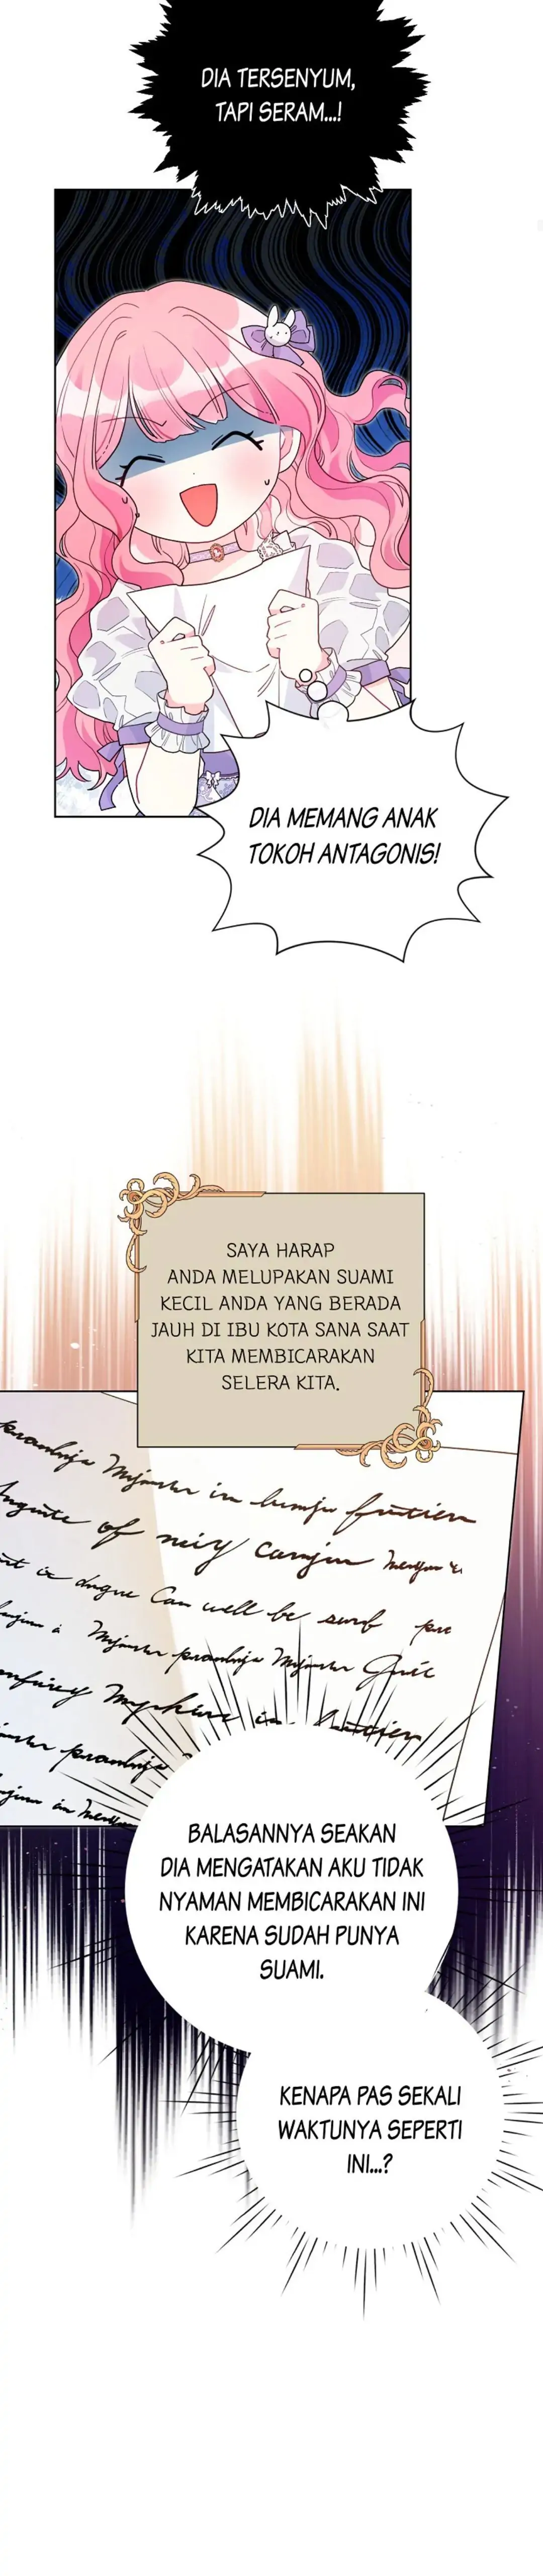 DIA TERSENYUM,
TAPI SERAM...!
DIA MEMANG ANAK
TOKOH ANTAGONIS!
SAYA HARAP
ANDA MELUPAKAN SUAMI
KECIL ANDA YANG BERADA
JAUH DI IBU KOTA SANA SAAT
KITA MEMBICARAKAN
SELERA KITA.
BALASANNYA SEAKAN
DIA MENGATAKAN AKU TIDAK
NYAMAN MEMBICARAKAN INI
KARENA SUDAH PUNYA
SUAMI.
KENAPA PAS SEKALI
WAKTUNYA SEPERTI
INI...?